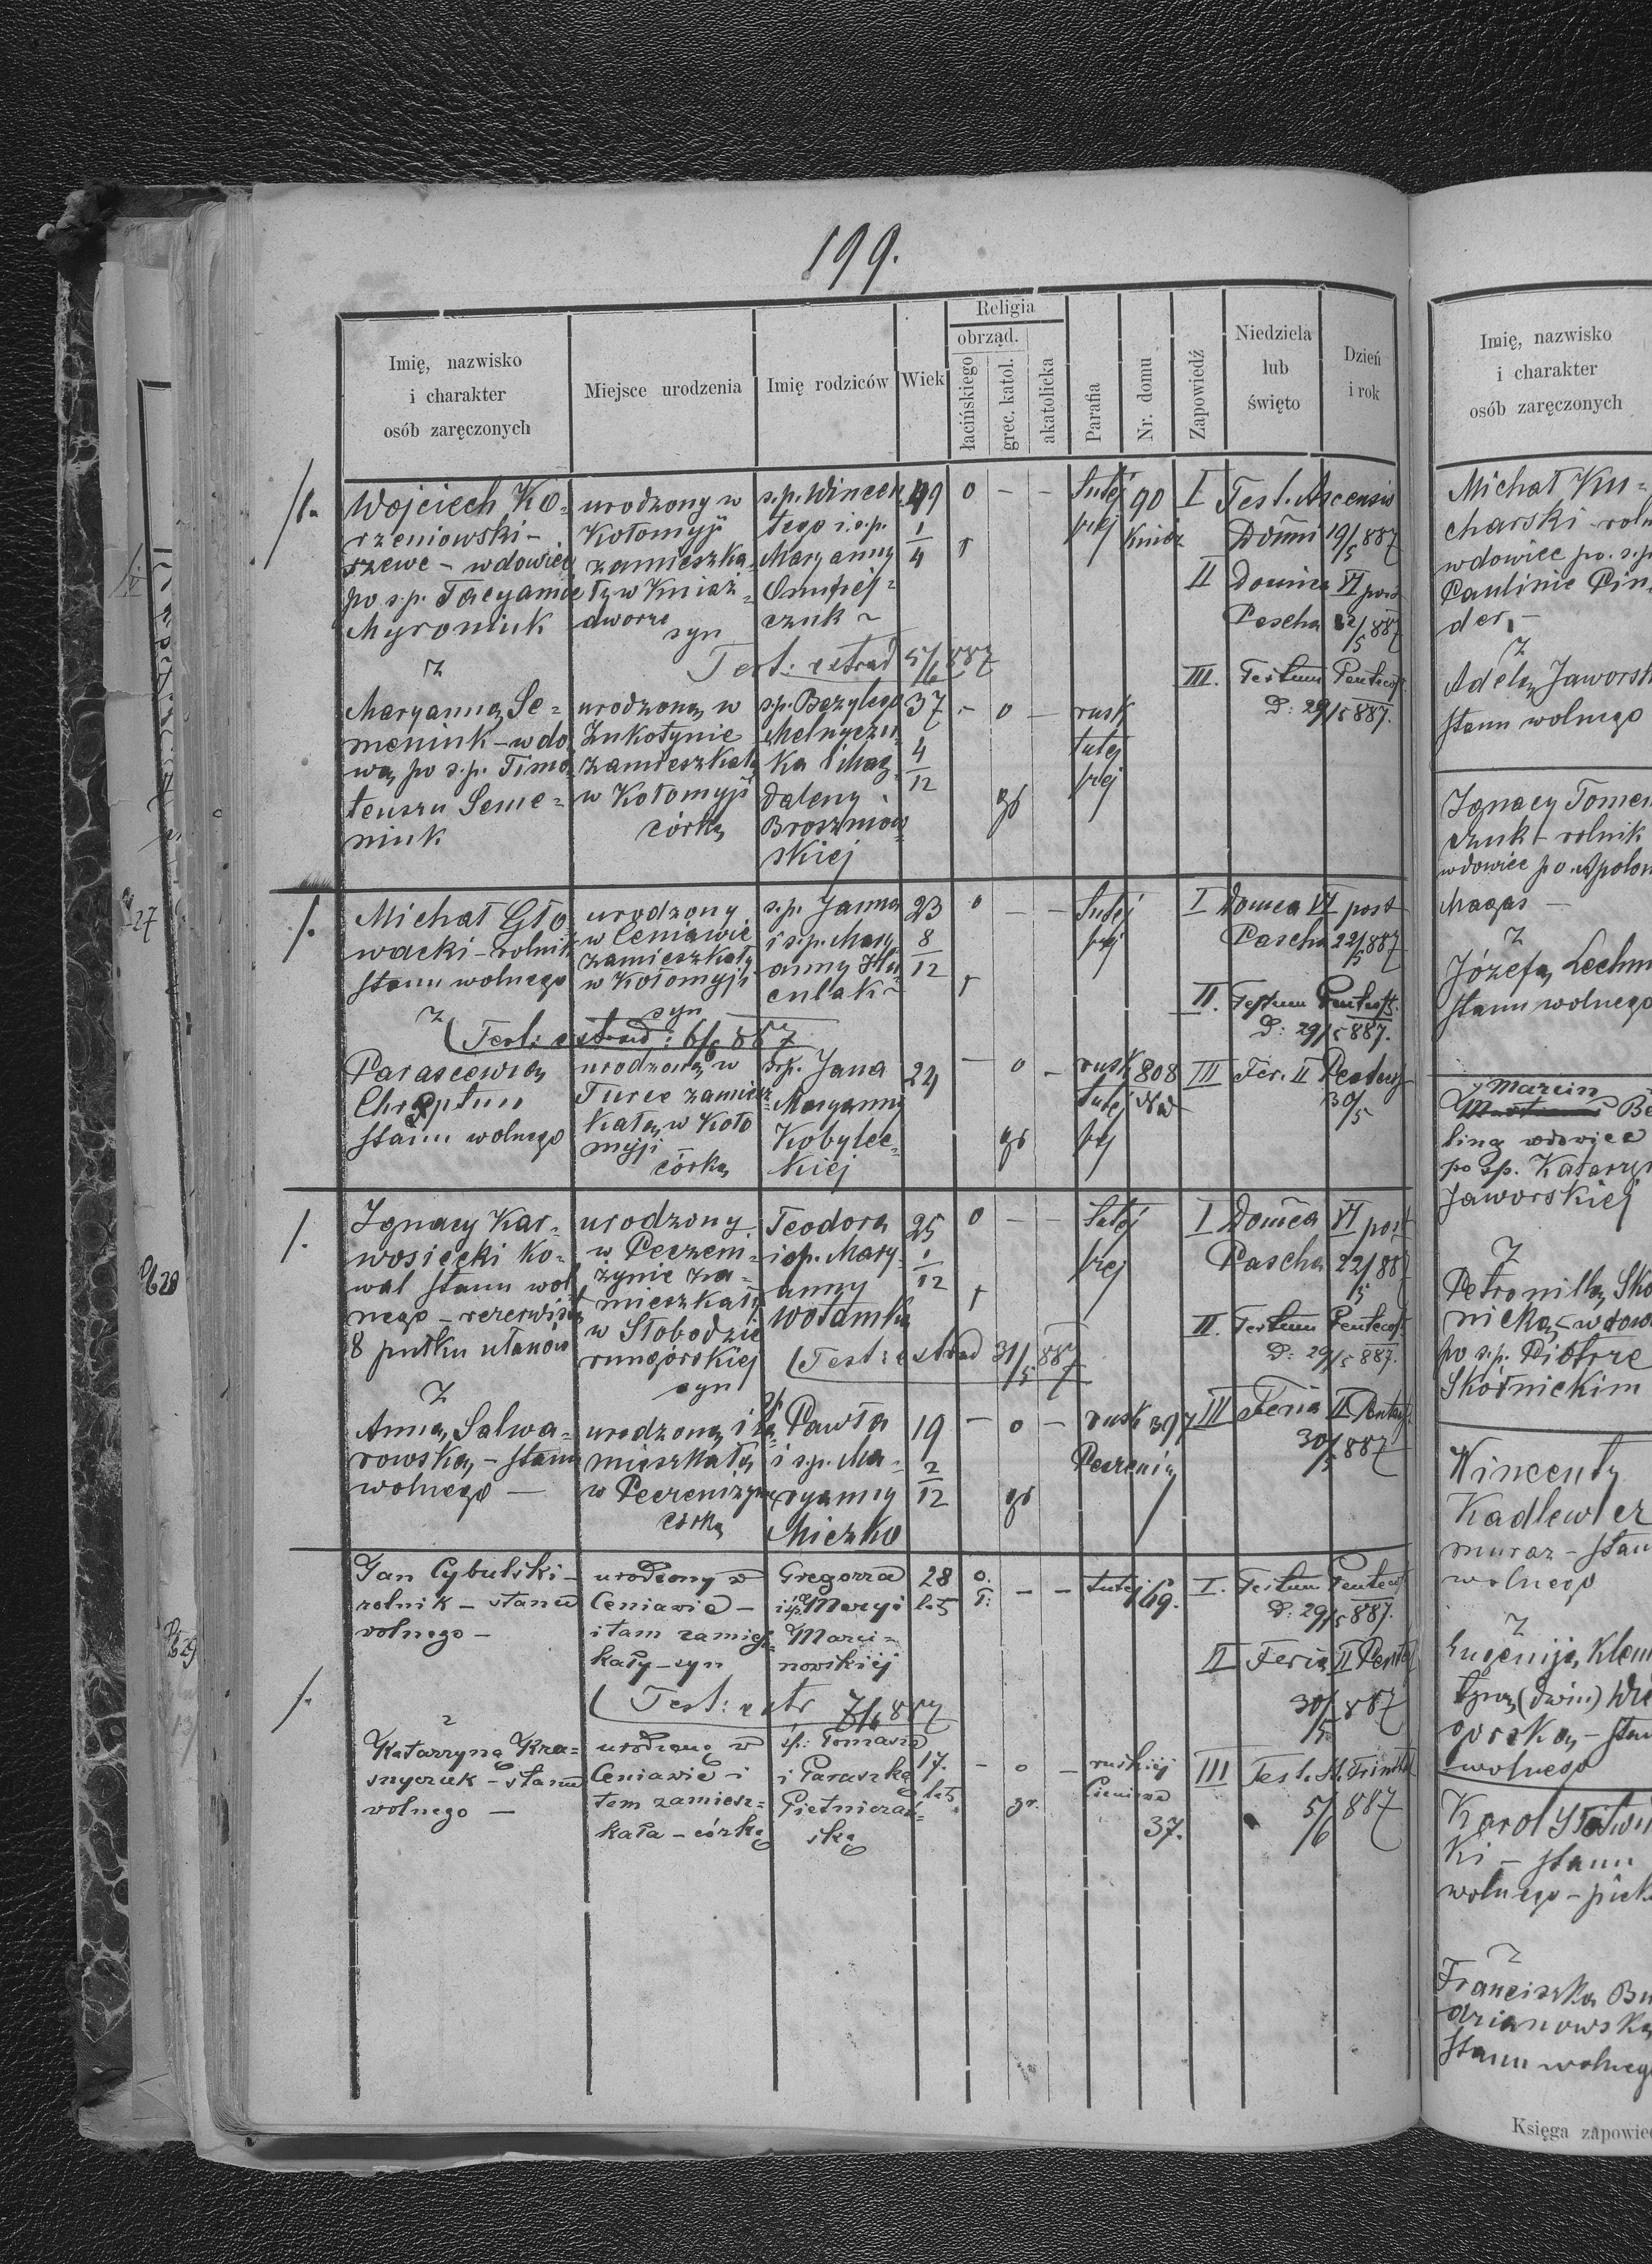 199.
Religia
obrząd.
Imię, nazwisko
i charakter
osób zaręczonych
Miejsce urodzenia
Imię rodziców
Wiek
łacińskiego
grec. katol.
akatolicka
Parafia
Nr. domu
Zapowiedź
Niedziela
lub
święto
Dzień
i rok
Wojciech Ko=
rzeniowski –
szewc – wdowiec
po s.p. Tacyannie
Myroniuk
z
urodzony w
Kołomyji
zamieszka=
ły w Kniaż=
dworze
syn
s.p. Wincen
tego i s.p.
Maryanny
czuk
49
1
4
o
r
– –
Tutej
szej
90
Kniaż
I Fest. Ascensio
Domni 19/5 887
II Dominica VI post
Pascha 22/5 887
III. Festum Pentecost.
D: 29/5 887.
Test: extrad 5/6 887
Maryanną Se=
meniuk – wdo
wą po s.p. Timo
teuszu Seme=
niuk
urodzoną w
Zukotynie
zamieszkałą
w Kołomyji
córką
s.p. Bazylego
Melnyczu
ka i Mag
daleny
Broszniow
skiej
37
4
12
– o –
gr
rusk
tutej
szej
Michał Gło
wacki – rolnik
stanu wolnego
z
urodzony
w Ceniawie
zamieszkały
w Kołomyji
syn
s.p. Janna
i s.p. Mary
anny Hu
culak
23
8
12
o – –
r
Tutej
szej
I Domca VI post
Pascha 22/5 887
II. Festum Pentecost.
D: 29/5 887.
III Fer. II Pentecost
30/5
(Test: extrad: 6/6 887
Parascewią
stanu wolnego
urodzoną w
Turce zamiesz=
kałą w Koło
myji
córką
s.p. Jana
Maryanny
Kobylec=
kiej
24
– o –
gr
rusk
tutej
szej
808
Ignacy Kar=
wosiecki ko=
wal stanu wol
nego – rezerwista
8 pułku ułanów
z
urodzony
w Peczeni=
żynie za=
mieszkały
w Słobodzie
rungórskiej
syn
Teodora
i s.p. Mary=
anny
25
1
12
o – –
r
Tutej
szej
I Domca VI post
Pascha 22/5 887
II. Festum Pentecost.
D: 29/5 887.
III Feria II Pentecost.
30/5 887
(Test: extrad 31/5 887
Anną Salwa=
rowską – stanu
wolnego –
urodzoną i za=
mieszkałą
w Peczeniżynie
córką
Pawła
i s.p. Ma=
ryanny
Miczko
19
2
12
– o –
gr
rusk
Peczeniż
397
Jan Cybulski –
rolnik – stanu
wolnego –
z
urodzony w
Ceniawie –
i tam zamiesz=
kały – syn
Gregorza
i śp. Maryi
Marci=
nowskiej
28
lat
o.
r:
– –
tutej
169.
I. Festum Pentecost
D: 29/5 887.
II Feria II Pentec
30/5 887
III Fest. St. Trinitat
5/6 887
(Test: extr 7/6 887
Katarzyna Kra=
snyczuk – stanu
wolnego –
urodzoną w
Ceniawie i
tam zamiesz=
kała – córką
śp. Tomasza
i Paraszką
Pietniczań=
ską
17.
lat
– o –
gr.
ruskiej
Ceniawa
37.
27
28
29
Imię, nazwisko
i charakter
osób zaręczonych
Michał Ku=
charski – roln
wdowiec po s.p
Paulinie Pin
der, –
z
Adelą Jaworsk
stanu wolnego
Ignacy Tomen
czuk – rolnik
wdowiec po Apolon
Magas –
z
Józefą Lechn
stanu wolnego
Marcin
ling wdowiec
po śp. Katarzyn
Jaworskiej
z
Petronillą Sko
nicką wdow
po s.p. Piotrze
Skotnickim
Wincenty
Kadlewicz
murarz – stan
wolnego
z
Eugeniją Klem
górską – stan
wolnego
Karol
ki – stanu
wolnego – piek
z
Franciszką Bu
drianowską
stanu wolnego
Księga zapowied